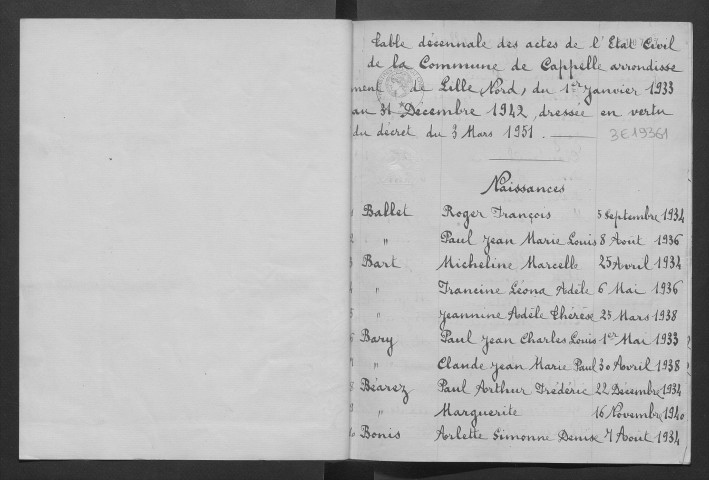 Table décennale des actes de l'Etat Civil
de la Commune de Cappelle arrondisse
ment de Lille Nord, du 1er Janvier 1933
au 31 Décembre 1942, dressée en vertu
du décret du 3 Mars 1951.
3E19361
Naissances
1 Ballet Roger François 5 Septembre 1934
2 " Paul Jean Marie Louis 8 Août 1936
3 Bart Micheline Marcelle 25 Avril 1934
4 " Francine Léona Adèle 6 Mai 1936
5 " Jeannine Adèle Thérèse 25 Mars 1938
6 Bary Paul Jean Charles Louis 1er Mai 1933
7 " Claude Jean Marie Paul 30 Avril 1938
8 Béarez Paul Arthur Frédéric 22 Décembre 1934
9 " Marguerite 16 Novembre 1940
10 Bonis Arlette Simonne Denise 7 Août 1934